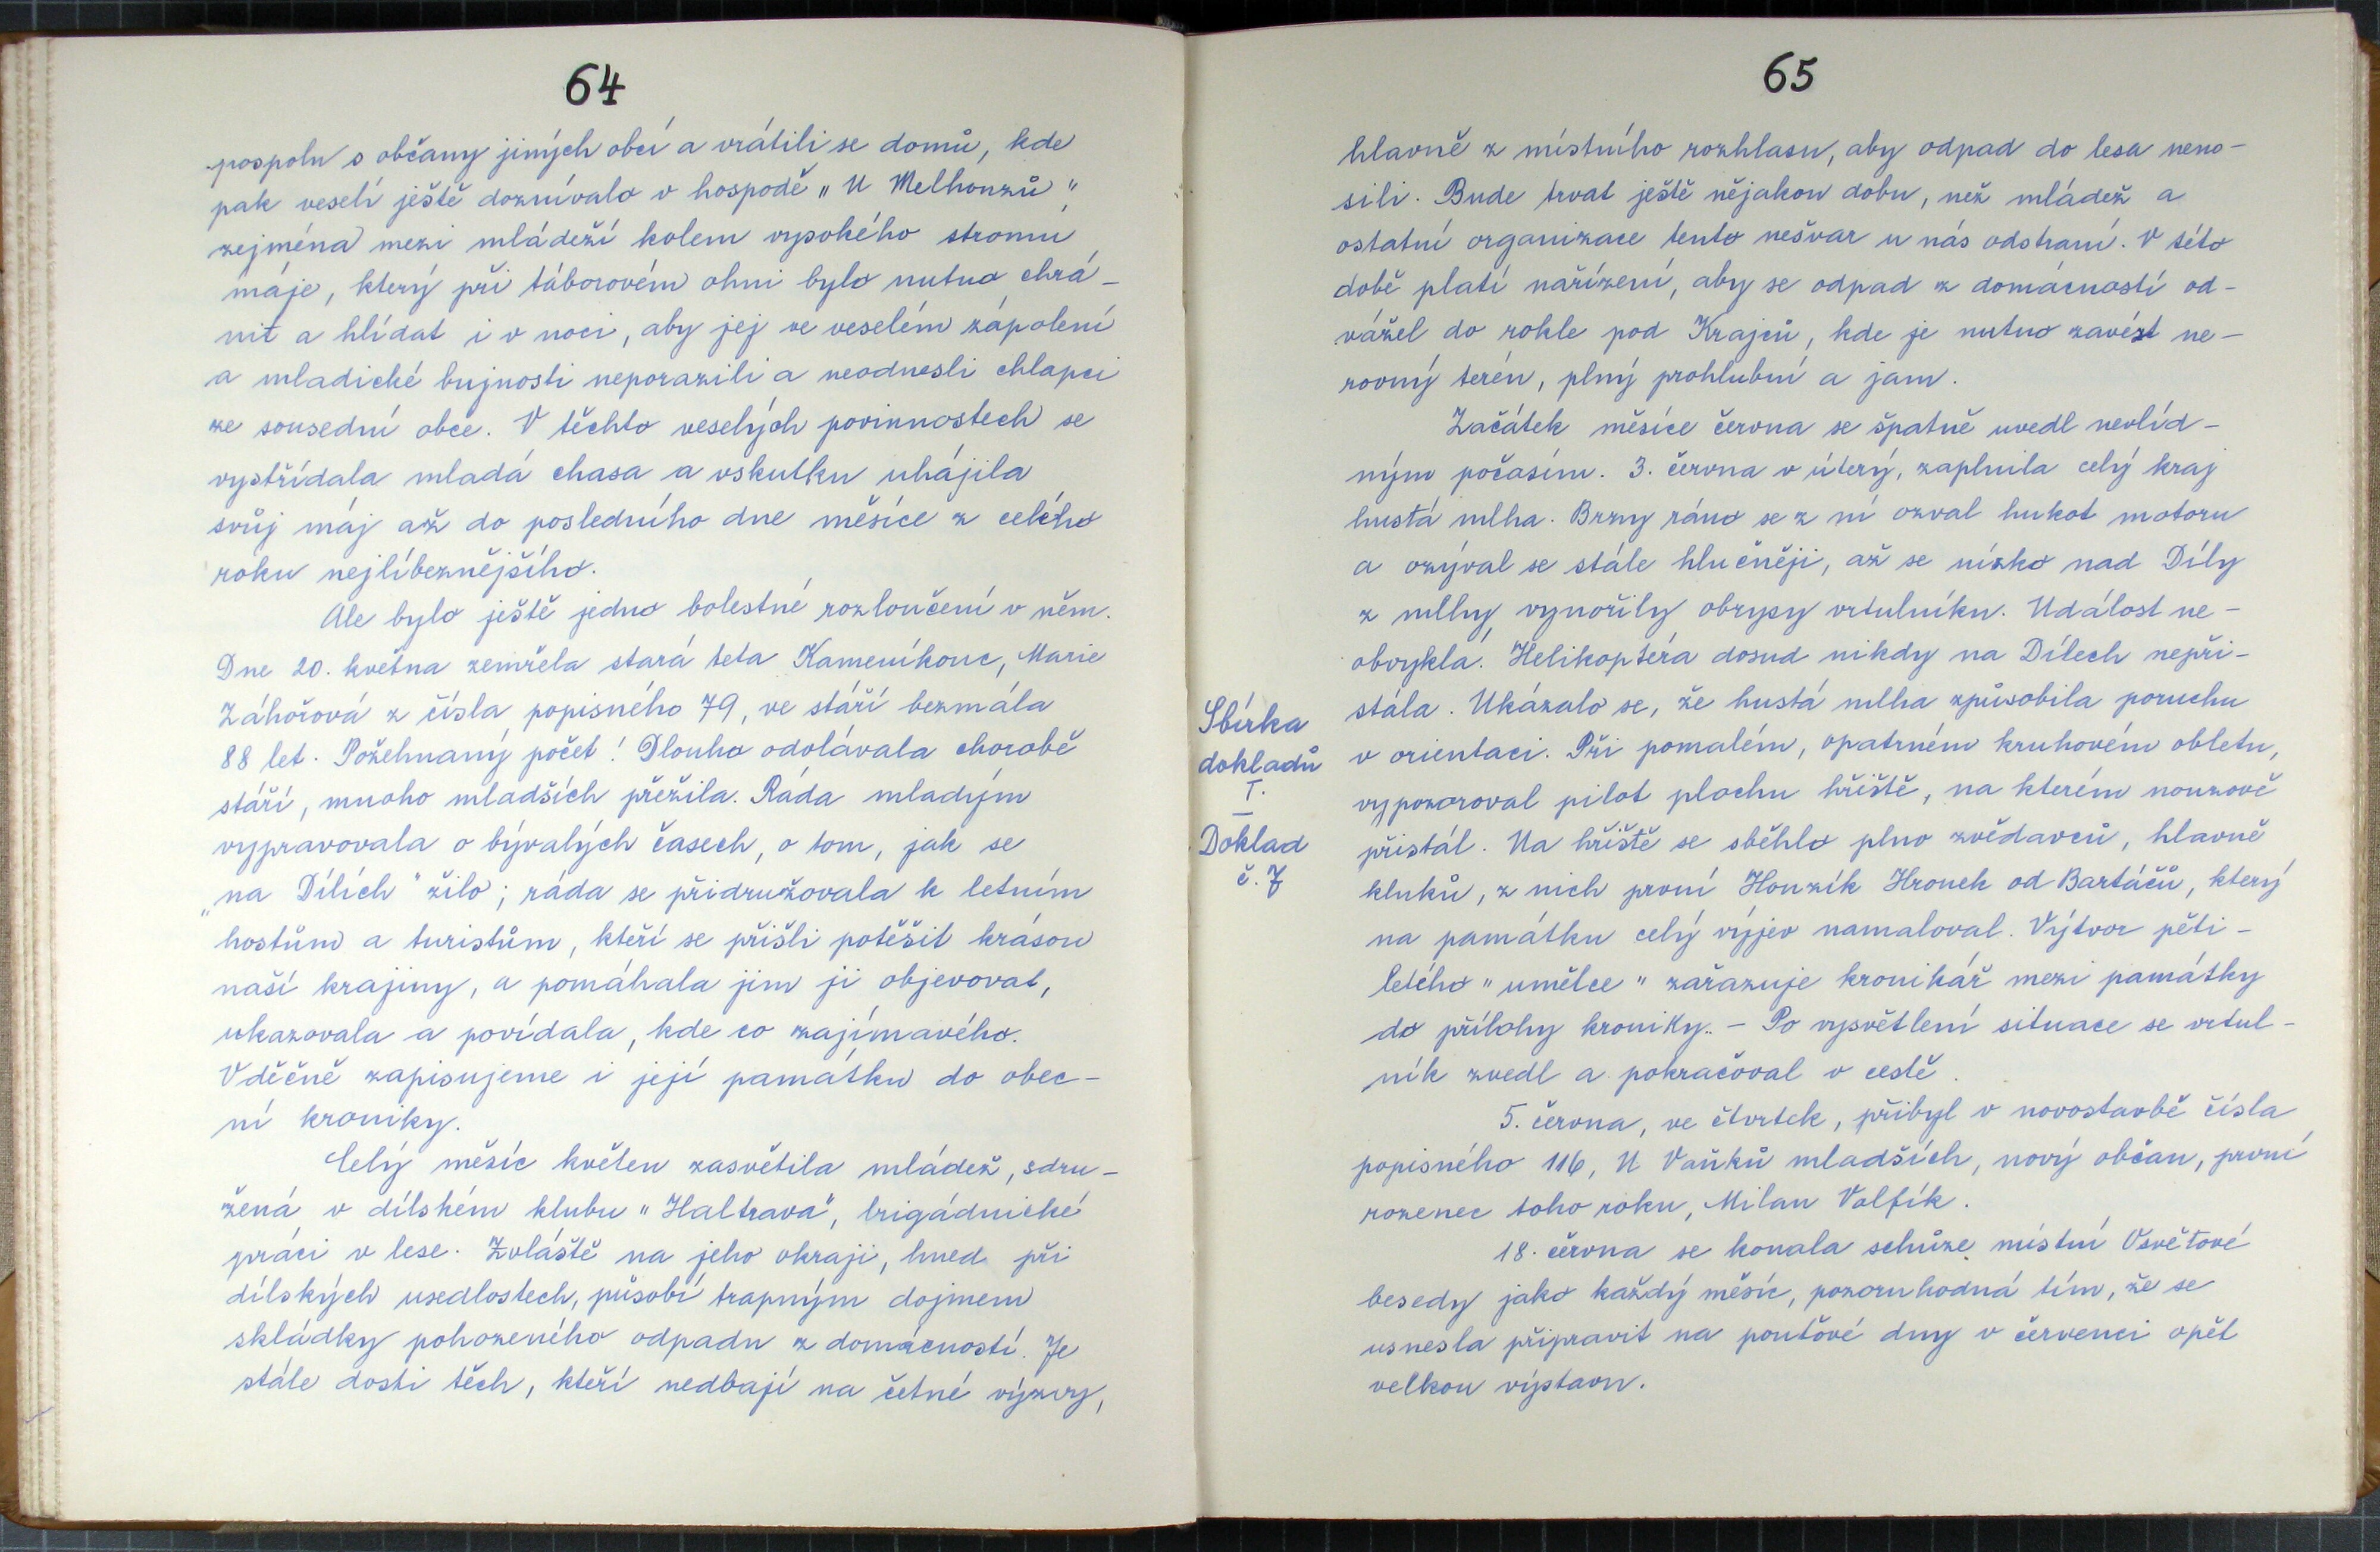 64
pospolu s občany jiných obcí a vrátili se domů, kde
pak veselí ještě doznívalo v hospodě „U Melhonzů",
zejména mezi mládeží kolem vysokého stromu
máje, který při táborovém ohni bylo nutno chrá-
nit a hlídat i v noci, aby jej ve veselém zápolení
a mladické bujnosti neporazili a neodnesli chlapci
ze sousední obce. V těchto veselých povinnostech se
vystřídala mladá chasa a vskutku uhájila
svůj máj až do posledního dne měsíce z celého
roku nejlíbeznějšího.
Ale bylo ještě jedno bolestné rozloučení v něm.
Dne 20. května zemřela stará teta Kameníkouc, Marie
Záhořová z čísla popisného 79, ve stáří bezmála
88 let. Požehnaný počet! Dlouho odolávala chorobě
stáří, mnoho mladších přežila. Ráda mladým
vypravovala o bývalých časech, o tom, jak se
„na Dílích" žilo; ráda se přidružovala k letním
hostům a turistům, kteří se přišli potěšit krásou
naší krajiny, a pomáhala jim ji objevovat,
ukazovala a povídala, kde co zajímavého.
Vděčně zapisujeme i její památku do obec-
ní kroniky.
Celý měsíc květen zasvětila mládež, sdru-
žená v dílském klubu „Haltrava", brigádnické
práci v lese. Zvláště na jeho okraji, hned při
dílských usedlostech, působí trapným dojmem
skládky pohozeného odpadu z domácností. Je
stále dosti těch, kteří nedbají na četné výzvy,
65
hlavně z místního rozhlasu, aby odpad do lesa neno-
sili. Bude trvat ještě nějakou dobu, než mládež a
ostatní organizace tento nešvar u nás odstraní. V této
době platí nařízení, aby se odpad z domácností od-
vážel do rokle pod Krajců, kde je nutno zavézt ne-
rovný terén, plný prohlubní a jam.
Začátek měsíce června se špatně uvedl nevlíd-
ným počasím. 3. června v úterý, zaplnila celý kraj
hustá mlha. Brzy ráno se z ní ozval hukot motoru
a ozýval se stále hlučněji, až se nízko nad Díly
z mlhy vynořily obrysy vrtulníku. Událost ne-
obvyklá! Helikoptéra dosud nikdy na Dílech nepři-
stála. Ukázalo se, že hustá mlha způsobila poruchu
v orientaci. Při pomalém, opatrném kruhovém obletu,
vypozoroval pilot plochu hřiště, na kterém nouzově
přistál. Na hřiště se sběhlo plno zvědavců, hlavně
kluků, z nich první Honzík Hronek od Bartáčů, který
na památku celý výjev namaloval. Výtvor pěti-
letého „umělce" zařazuje kronikář mezi památky
do přílohy kroniky. – Po vysvětlení situace se vrtul-
ník zvedl a pokračoval v cestě.
5. června, ve čtvrtek, přibyl v novostavbě čísla
popisného 116, U Vaňků mladších, nový občan, první
rozenec toho roku, Milan Volfík.
18. června se konala schůze místní Osvětové
besedy jako každý měsíc, pozoruhodná tím, že se
usnesla připravit na pouťové dny v červenci opět
velkou výstavu.
Sbírka
dokladů
I.
–
Doklad
č. 7